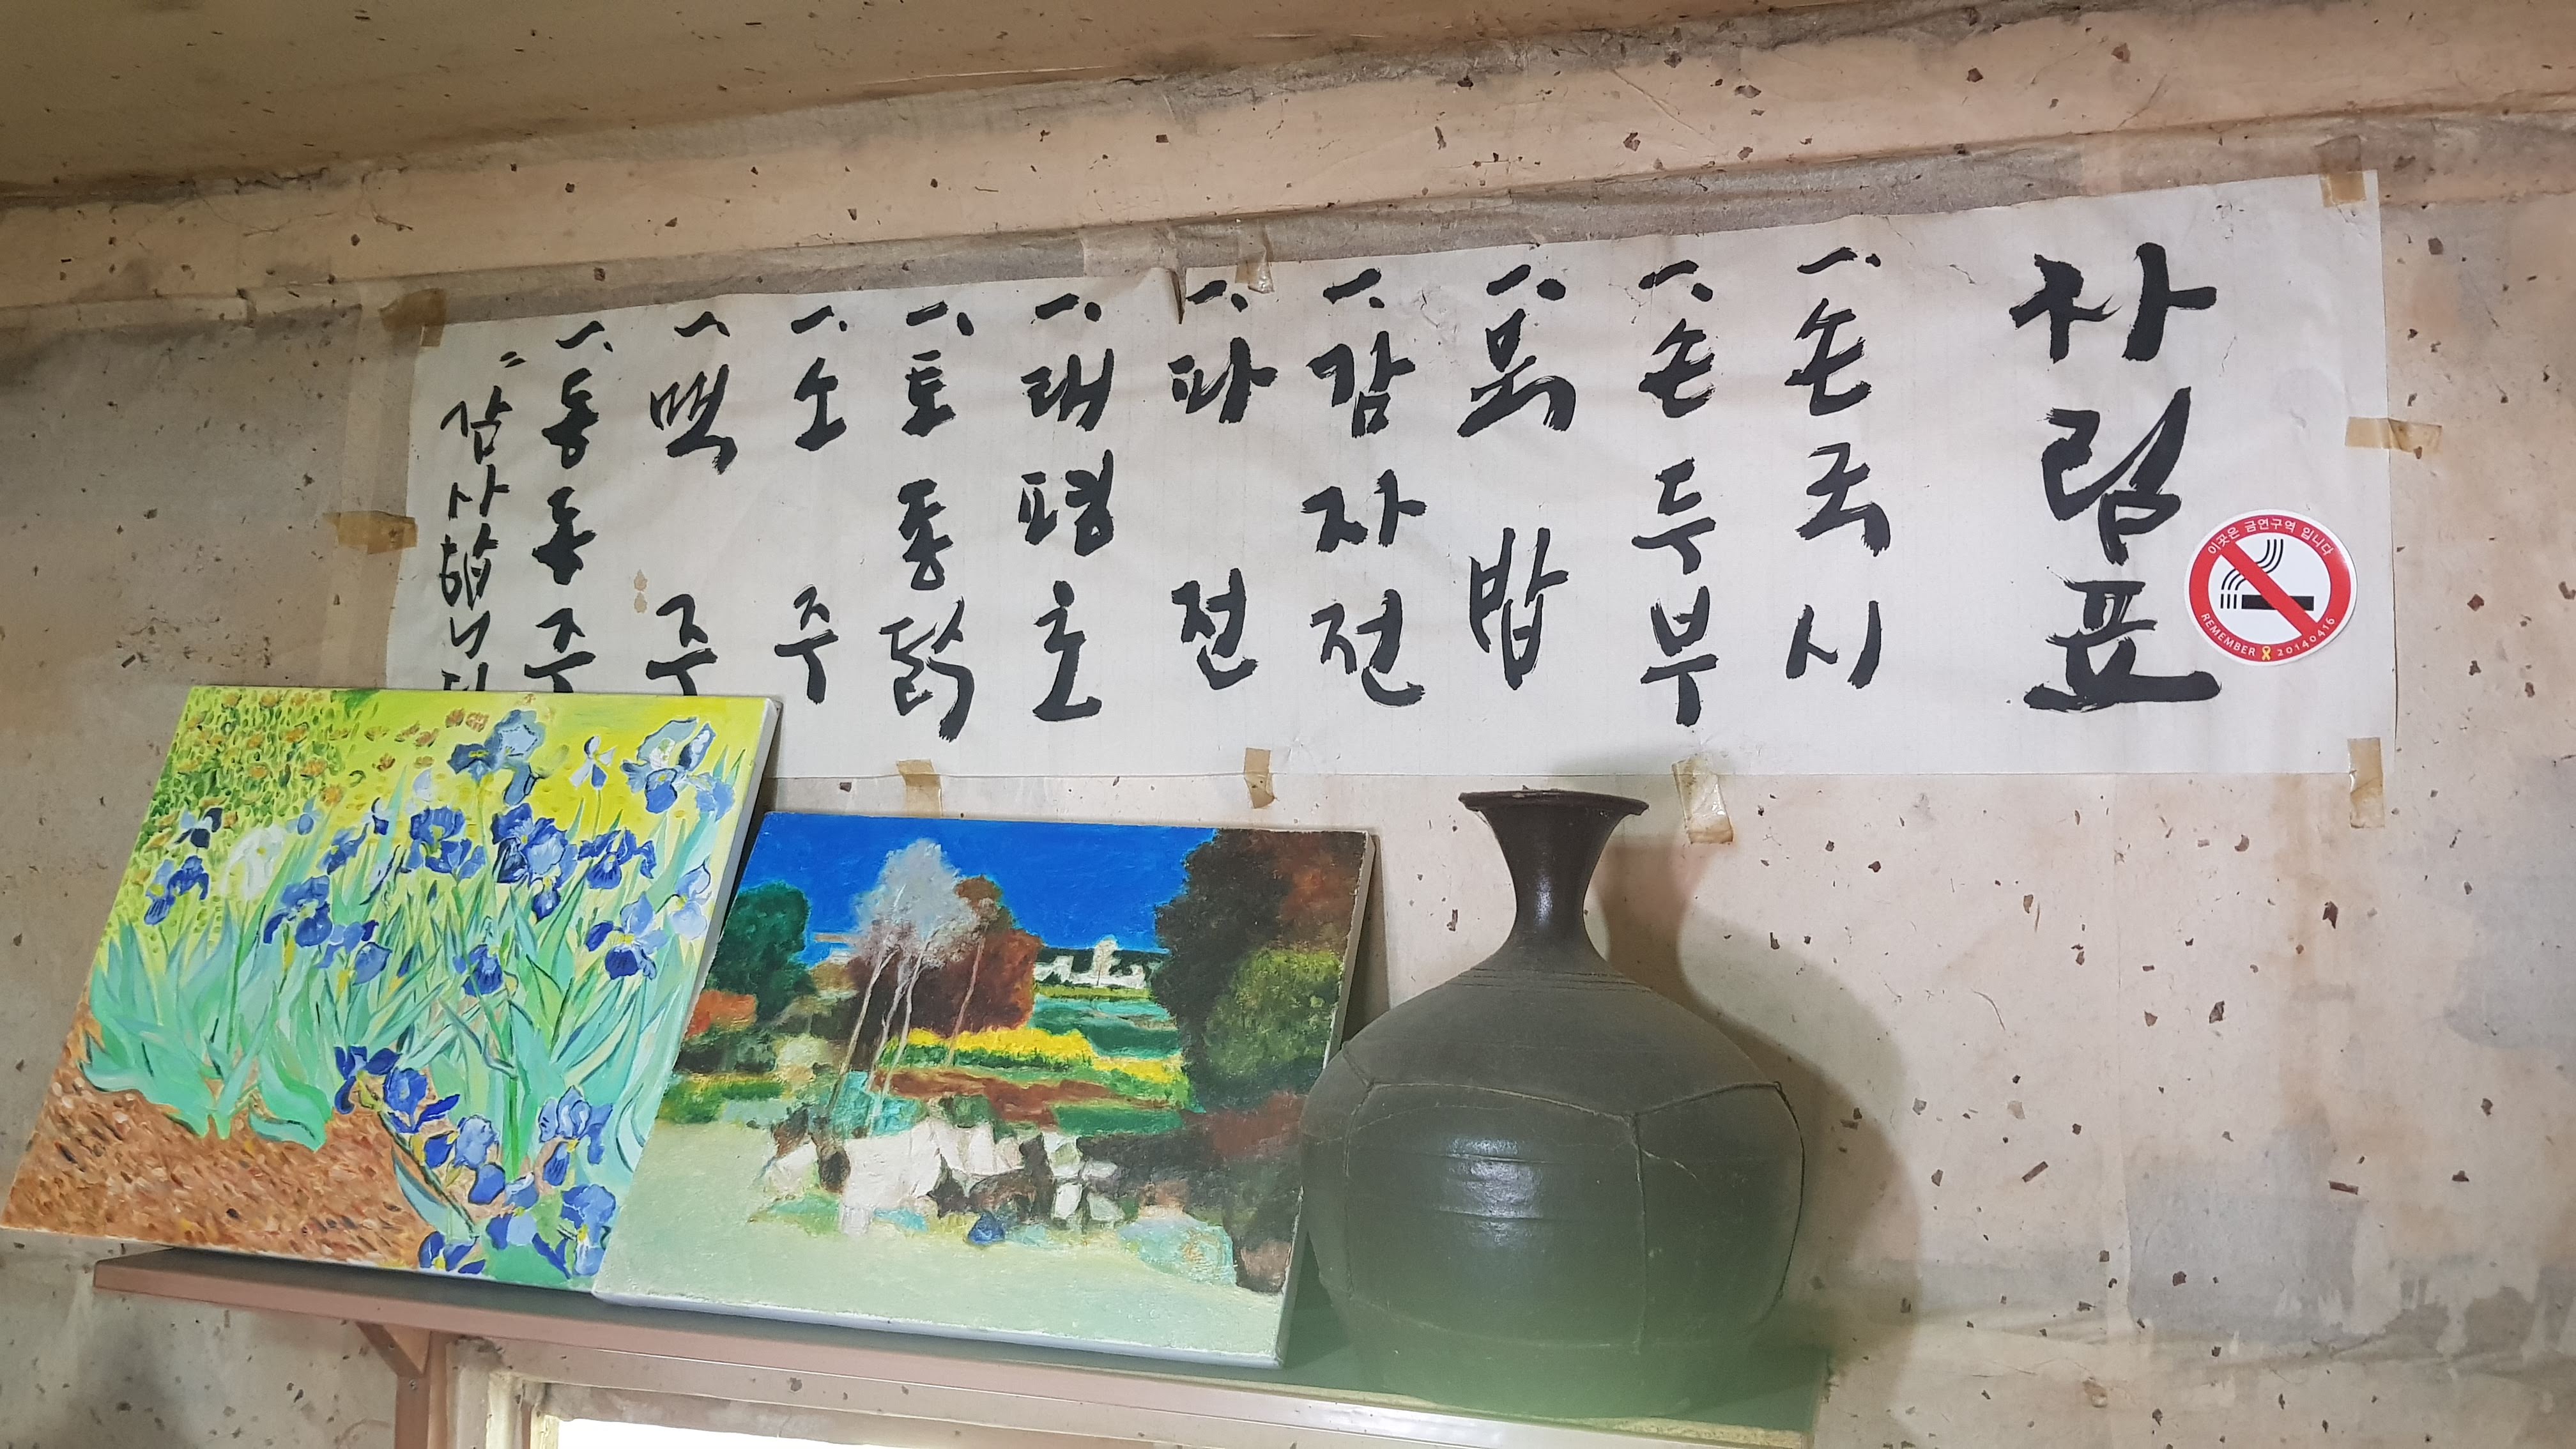 차림표
一. 손국시
一. 손두부
一. 묵밥
一. 감자전
一. 파전
一. 태평초
一. 토종닭
一. 소주
一. 맥주
一. 동동주
〃 감사합니다
이곳은 금연구역 입니다
REMEMBER 20140416